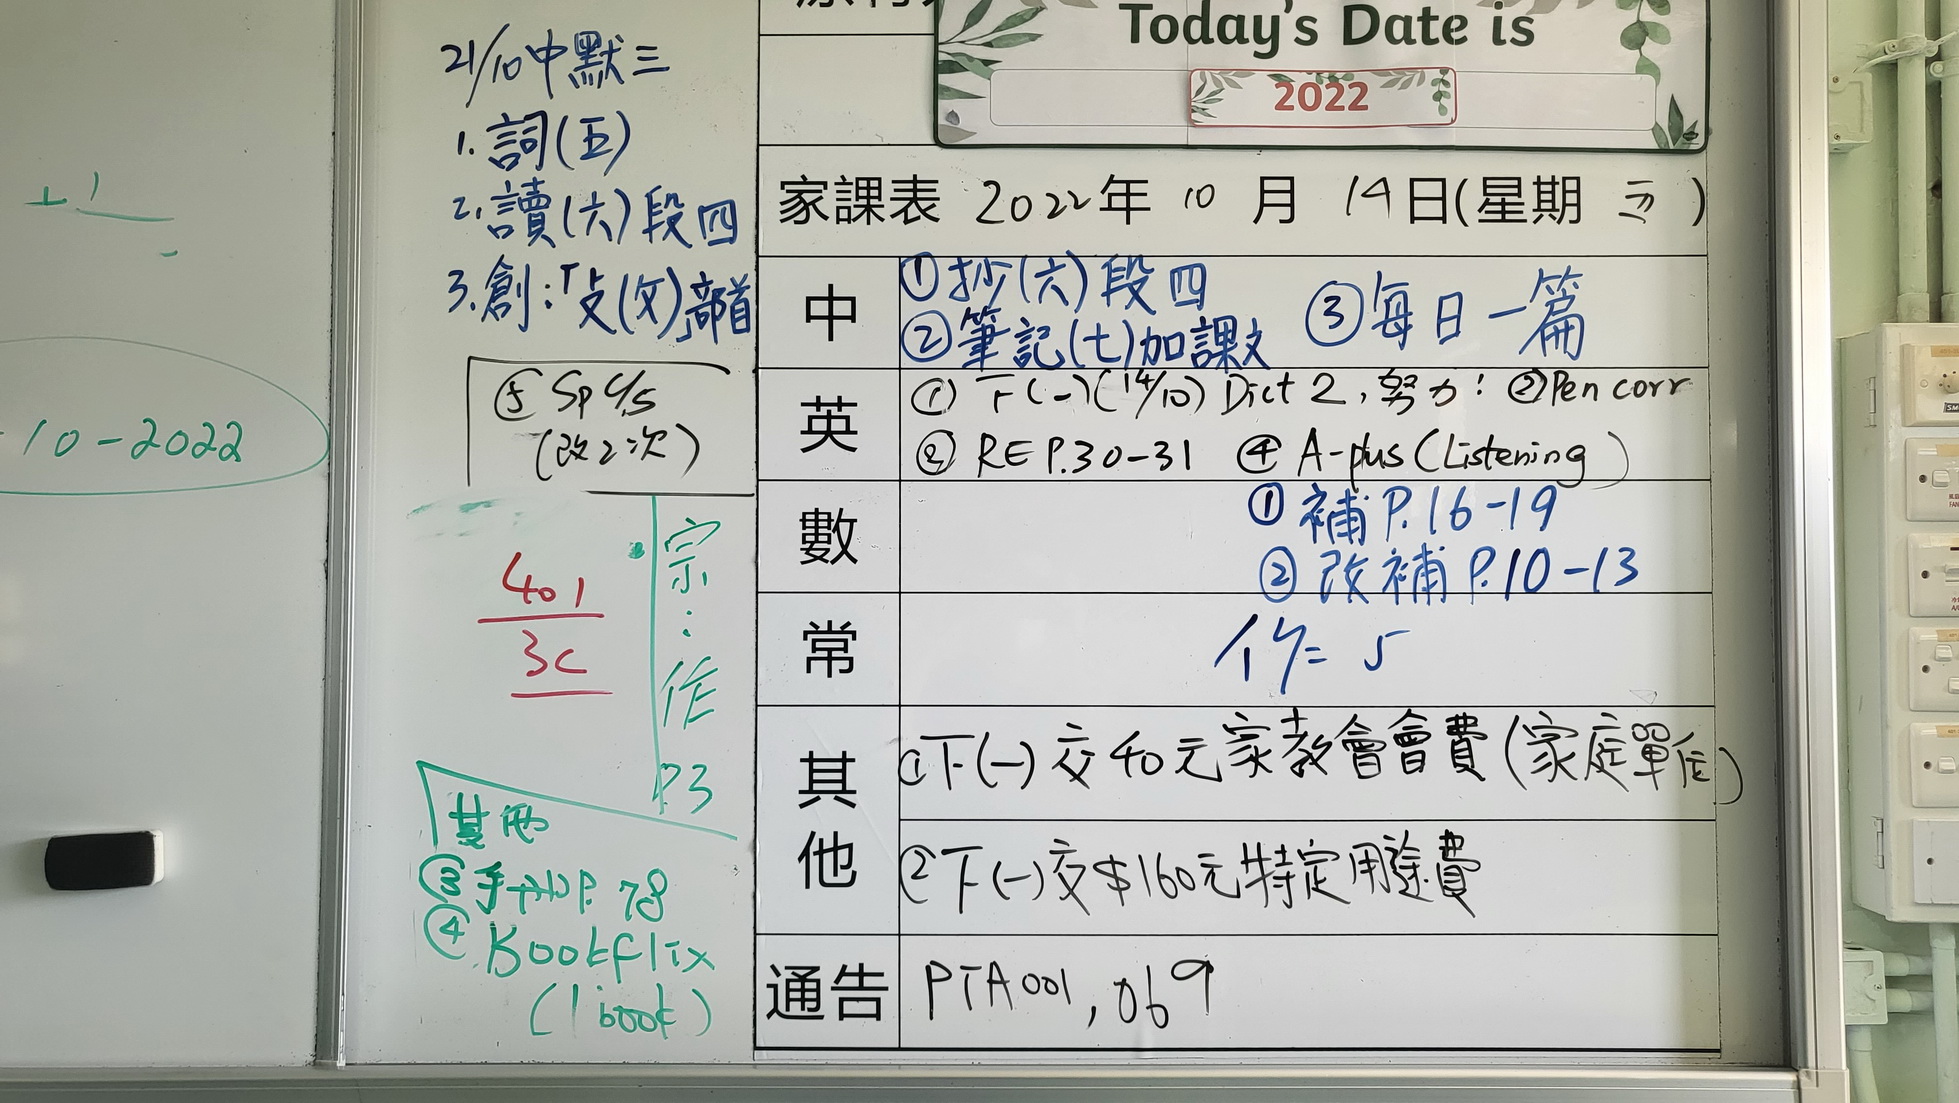 21/10中默三
1. 詞(五)
2. 讀(六)段四
3. 創:「攴(攵)」部首
⑤ Sp 4/5
(改2次)
401
3C
宗:作
P3
其他
③手冊P. 78
④ Bookflix
(1 book)
10-2022
Today's Date is
2022
家課表 2022年 10 月 14日(星期 五)
中
①抄(六)段四
②筆記(七)加課文
③每日一篇
英
① 下(一)(14/10) Dict 2, 努力! ②Pen corr
③ RE P.30-31 ④ A-plus (Listening)
數
① 補 P.16-19
② 改補 P.10-13
常
作= 5
其他
①下(一)交40元家教會會費(家庭單位)
②下(一)交$160元特定用途費
通告
PTA001, 069